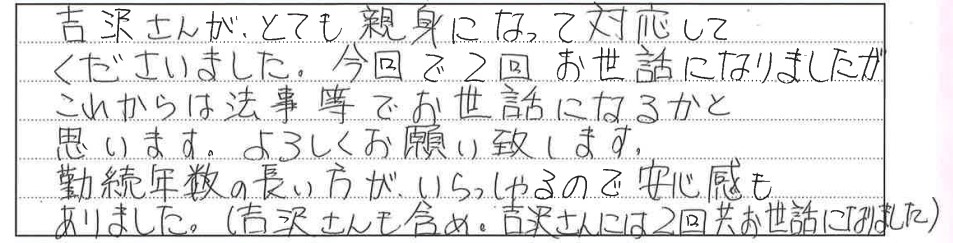 吉沢さんが、とても親身になって対応して
くださいました。今回で2回お世話になりましたが
これからは法事等でお世話になるかと
思います。よろしくお願い致します。
勤続年数の長い方が、いらっしゃるので安心感も
ありました。(吉沢さんも含め。吉沢さんには2回共お世話になりました)